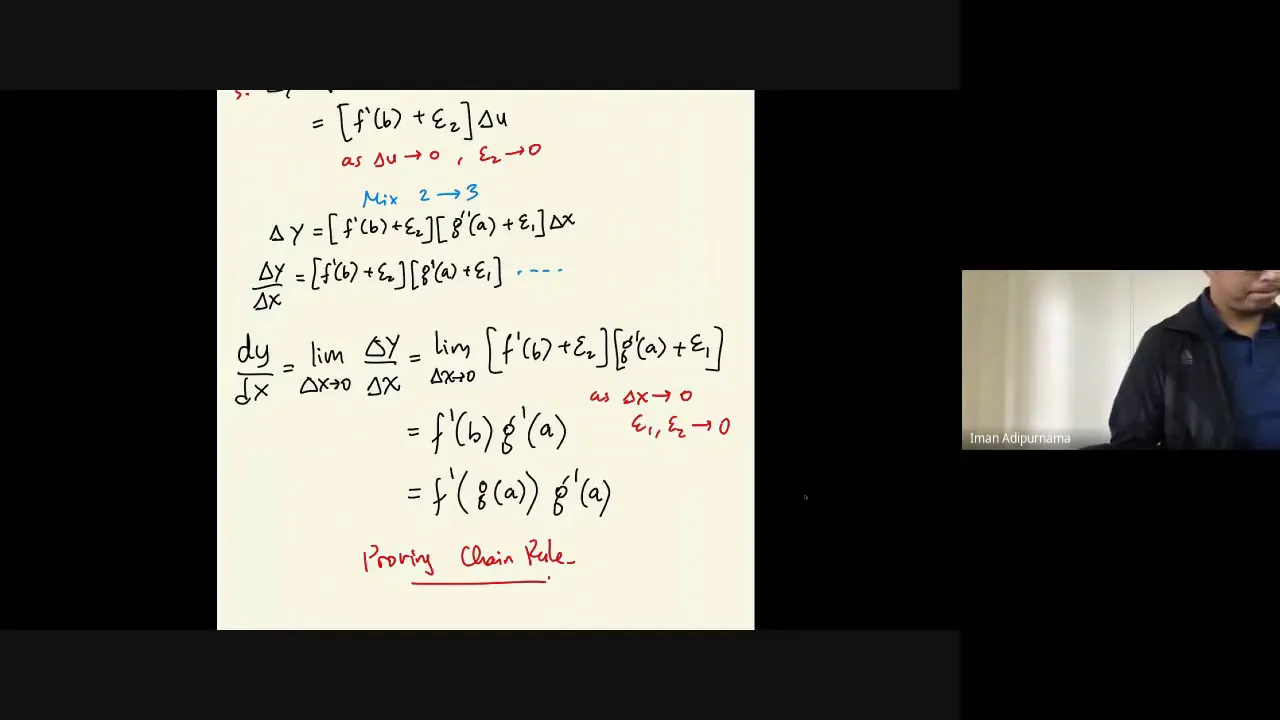 = [f'(b) + ε₂] Δu
as Δu → 0 , ε₂ → 0
Mix 2 → 3
ΔY = [f'(b) + ε₂][g'(a) + ε₁] Δx
ΔY/Δx = [f'(b) + ε₂][g'(a) + ε₁] ·----
dy/dx = lim Δx→0 ΔY/Δx = lim Δx→0 [f'(b) + ε₂][g'(a) + ε₁]
as Δx → 0
= f'(b) g'(a)
ε₁, ε₂ → 0
= f'(g(a)) g'(a)
Proving Chain Rule
Iman Adipurnama